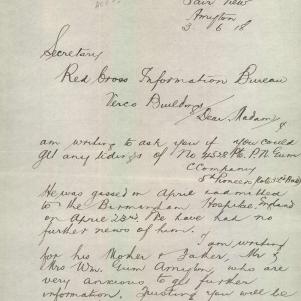 Fair View
Amyton
3/6/18
Secretary
Red Cross Information Bureau
Verco Buildings
Dear Madam
I
am writing to ask you if you could
get any tidings of No 4538 Pte P.N. Gum
C Company
5th Pioneers
He was gassed in April admitted
to the Birmingham Hospital, England
on April 23rd. We have had no
further news of him.
I am writing
for his Mother & Father, Mr &
Mrs Wm. Gum Amyton, who are
very anxious to get further
information. Trusting you will be